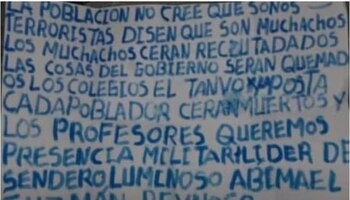 LA POBLACION NO CREE QUE SONOS
TERRORISTAS DISEN QUE SON MUCHACHOS
LOS MUCHACHOS CERAN RECLUTADADOS
LAS COSAS DEL GOBIERNO SERAN QUEMAD
OS LOS COLEGIOS EL TANVO POSTA
CADA POBLADOR CERAN MUERTOS Y
LOS PROFESORES QUEREMOS
PRESENCIA MILITAR LIDER DE
SENDERO LUMINOSO ABIMAEL